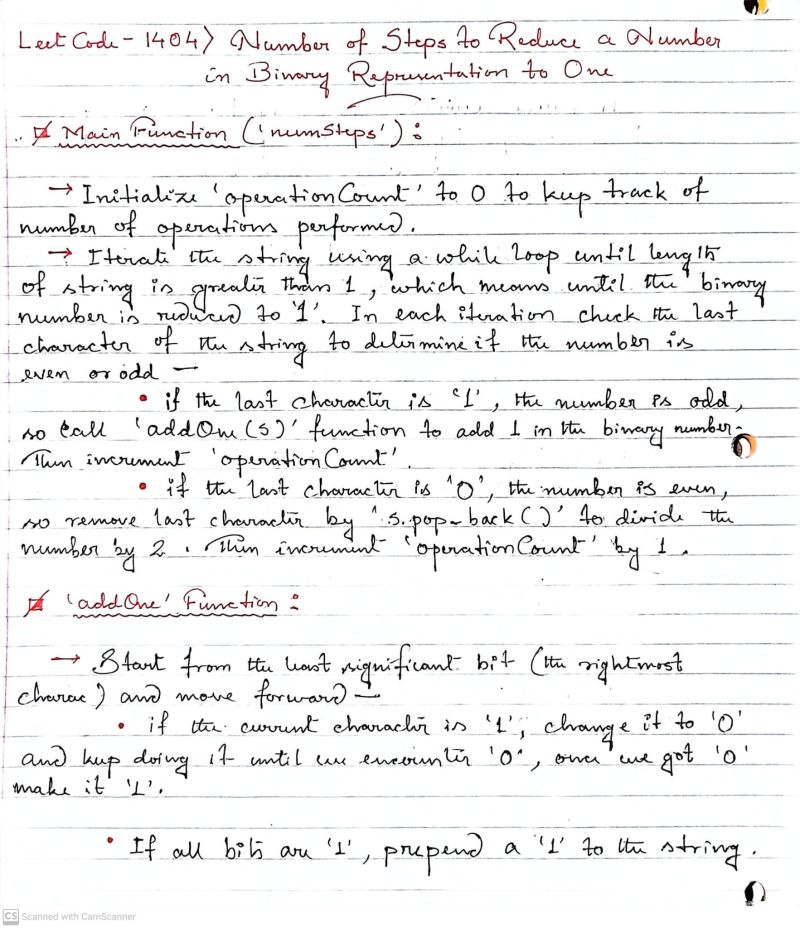 Leet Code - 1404) Number of Steps to Reduce a Number
in Binary Representation to One
Main Function ('numSteps') :
→ Initialize 'operationCount' to 0 to keep track of
number of operations performed.
→ Iterate the string using a while loop until length
of string is greater than 1, which means until the binary
number is reduced to '1'. In each iteration check the last
character of the string to determine if the number is
even or odd —
• if the last character is '1', the number is odd,
so call 'addOne(s)' function to add 1 in the binary number.
Then increment 'operationCount'.
• if the last character is '0', the number is even,
so remove last character by 's.pop_back()' to divide the
number by 2. Then increment 'operationCount' by 1.
'addOne' Function :
→ Start from the least significant bit (the rightmost
charac) and move forward —
• if the current character is '1', change it to '0'
and keep doing it until we encounter '0', once we got '0'
make it '1'.
• If all bits are '1', prepend a '1' to the string.
CS Scanned with CamScanner